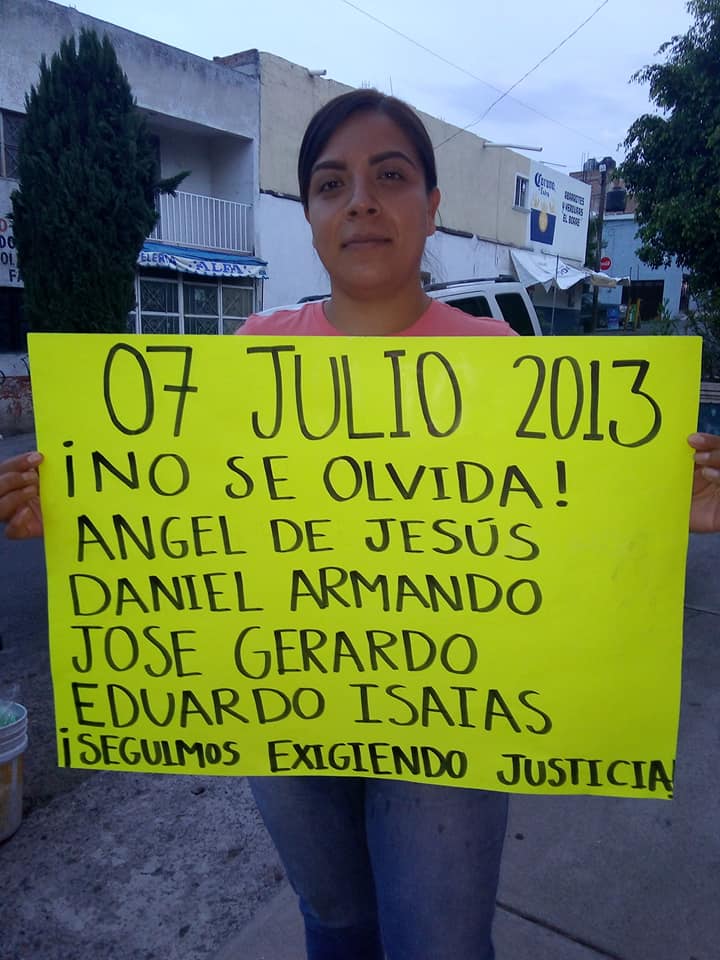 07 JULIO 2013
¡NO SE OLVIDA!
ANGEL DE JESÚS
DANIEL ARMANDO
JOSE GERARDO
EDUARDO ISAIAS
¡SEGUIMOS EXIGIENDO JUSTICIA!
ALFA
Corona
Extra
ABARROTES
Y VERDURAS
EL BORRE